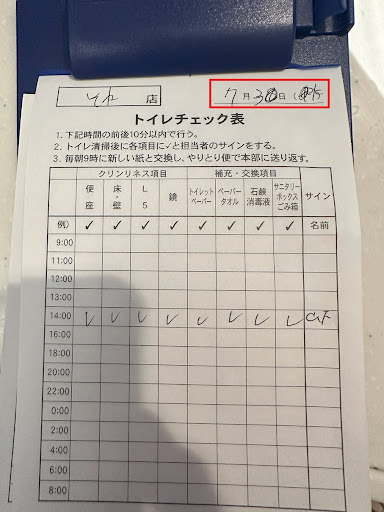 店 7月30日(
トイレチェック表
1. 下記時間の前後10分以内で行う。
2. トイレ清掃後に各項目に✓と担当者のサインをする。
3. 毎朝9時に新しい紙と交換し、やりとり便で本部に送り返す。
クリンリネス項目 補充・交換項目 サイン
便座 床・壁 L5 鏡 トイレットペーパー ペーパータオル 石鹸消毒液 サニタリーボックスごみ箱
例) ✓ ✓ ✓ ✓ ✓ ✓ ✓ ✓ 名前
9:00
11:00
12:00
13:00
14:00 ✓ ✓ ✓ ✓ ✓ ✓ ✓ ✓
16:00
18:00
20:00
22:00
0:00
2:00
4:00
6:00
8:00